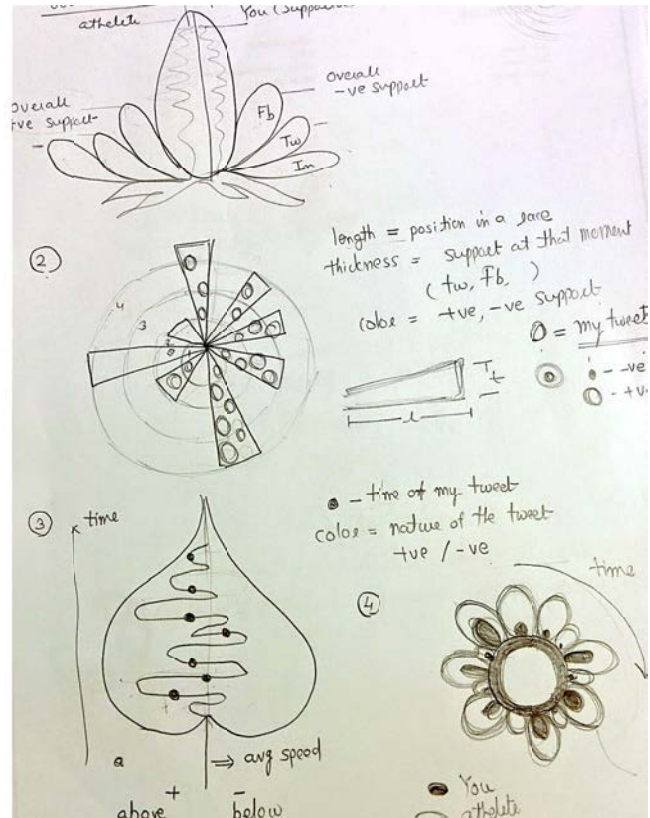 athelete
You (Suppo
overall
-ve support
overall
+ve support
Fb
Tw
In
2
length = position in a race
thickness = support at that moment
(tw, fb, )
color = +ve, -ve support
O = my tweet
4
3
T
t
l
- -ve
- +v
3
time
- time of my tweet
color = nature of the tweet
+ve / -ve
4
time
⇒ avg speed
+ -
above below
You
athelete